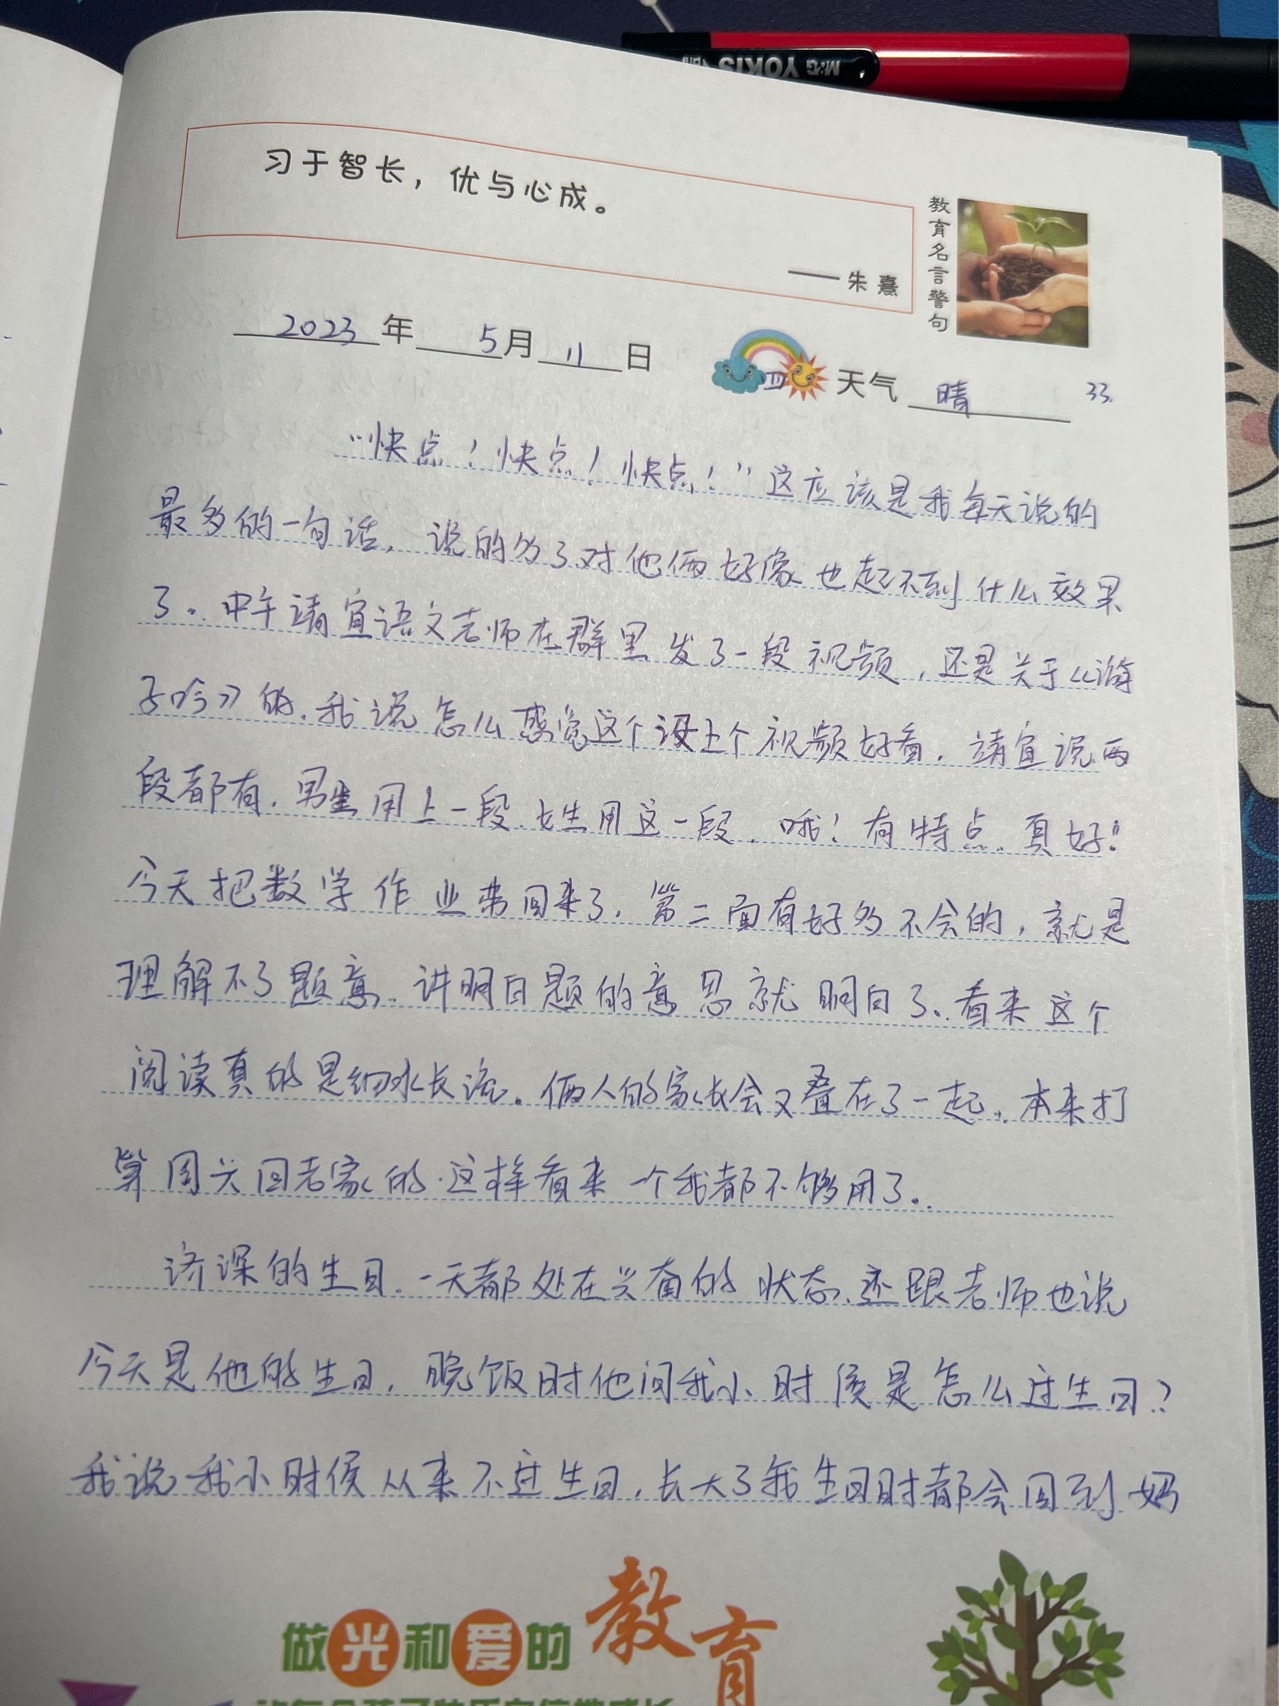 M&G YOKIS
习于智长，优与心成。
——朱熹
教育名言警句
2023年 5月 11日 四 天气 晴 33.
“快点！快点！快点！”这应该是我每天说的
最多的一句话，说的多了对他俩好像也起不到什么效果
了。中午靖宜语文老师在群里发了一段视频，还是关于《游
子吟》的，我说怎么感觉这个没上个视频好看，靖宜说两
段都有，男生用上一段，女生用这一段，哦！有特点，真好！
今天把数学作业带回来了，第二面有好多不会的，就是
理解不了题意，讲明白题的意思就明白了。看来这个
阅读真的是细水长流。俩人的家长会又叠在了一起，本来打
算周六回老家的，这样看来一个我都不够用了。
济深的生日，一天都处在兴奋的状态，还跟老师也说
今天是他的生日，晚饭时他问我小时候是怎么过生日？
我说我小时候从来不过生日，长大了我生日时都会回到妈
做光和爱的教育